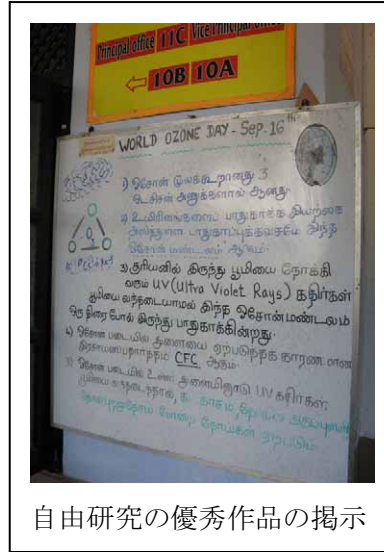 Principal office 11C Vice Principal office
⇐ 10B 10A
WORLD OZONE DAY - Sep. 16th
1) ஓசோன் மூலக்கூறானது 3
ஆக்சிஜன் அணுக்களால் ஆனது.
2) உயிரினங்களைப் பாதுகாக்க இயற்கை
அளித்துள்ள பாதுகாப்புக்கவசமே இந்த
ஓசோன் மண்டலம் ஆகும்.
3) சூரியனில் இருந்து பூமியை நோக்கி
வரும் UV (Ultra Violet Rays) கதிர்கள்
பூமியை வந்தடையாமல் இந்த ஓசோன் மண்டலம்
ஒரு திரை போல் இருந்து பாதுகாக்கின்றது.
4) ஓசோன் படையில் துளையை ஏற்படுத்தக் காரணமான
CFC ஆகும்.
5) ஓசோன் படையில் துளையினூடு UV கதிர்கள்
பூமியை வந்தடைந்தால்,
நோய்கள் ஏற்படும்.
自由研究の優秀作品の掲示